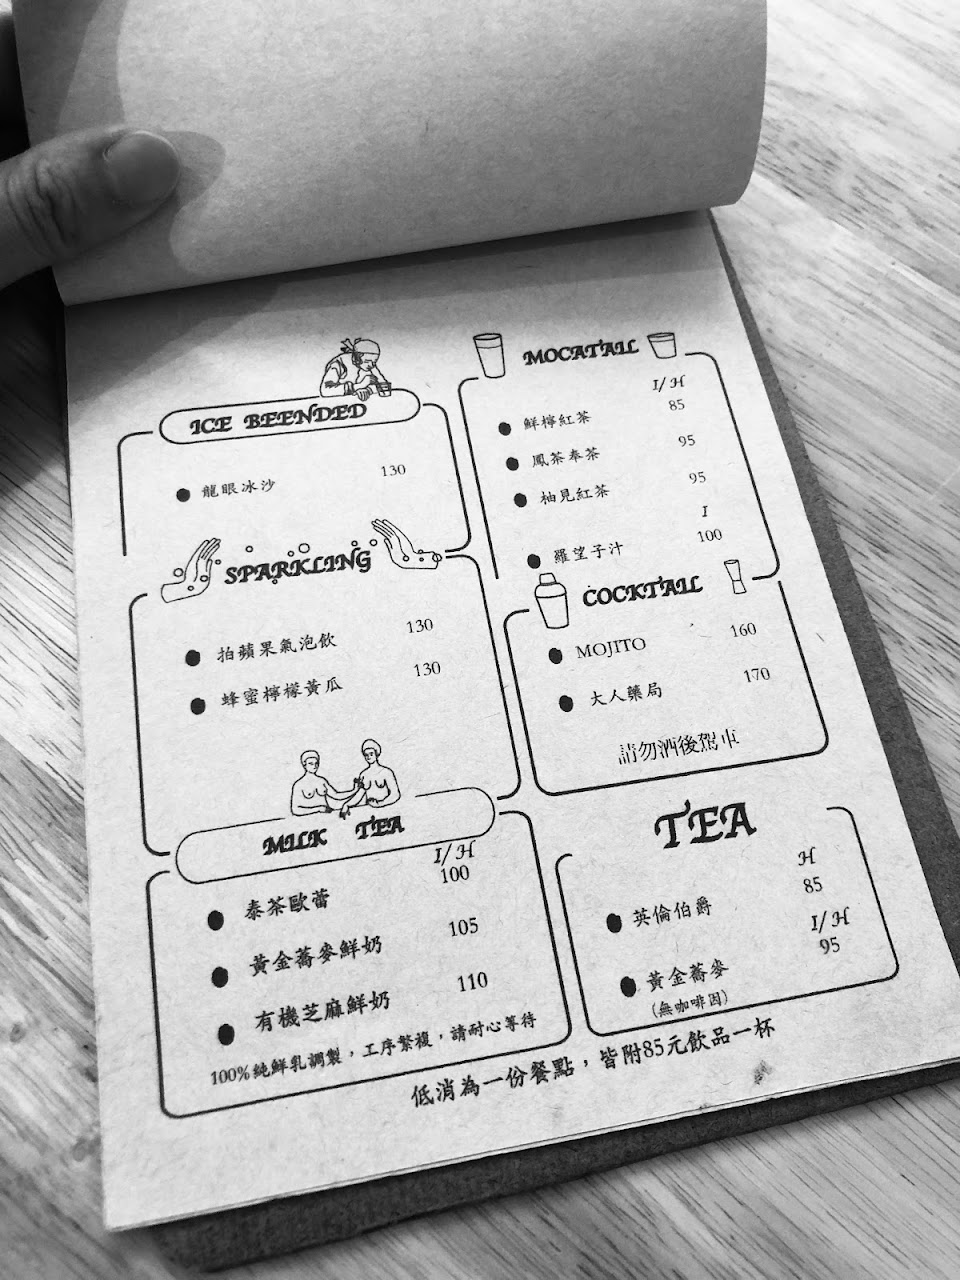 ICE BEENDED
龍眼冰沙 130
SPARKLING
拍蘋果氣泡飲 130
蜂蜜檸檬黃瓜 130
MILK TEA
I/H
泰茶歐蕾 100
黃金蕎麥鮮奶 105
有機芝麻鮮奶 110
100%純鮮乳調製，工序繁複，請耐心等待
MOCATAIL
I/H
鮮檸紅茶 85
鳳茶奉茶 95
柚見紅茶 95
I
羅望子汁 100
COCKTAIL
MOJITO 160
大人藥局 170
請勿酒後駕車
TEA
H
英倫伯爵 85
I/H
黃金蕎麥 95
(無咖啡因)
低消為一份餐點，皆附85元飲品一杯